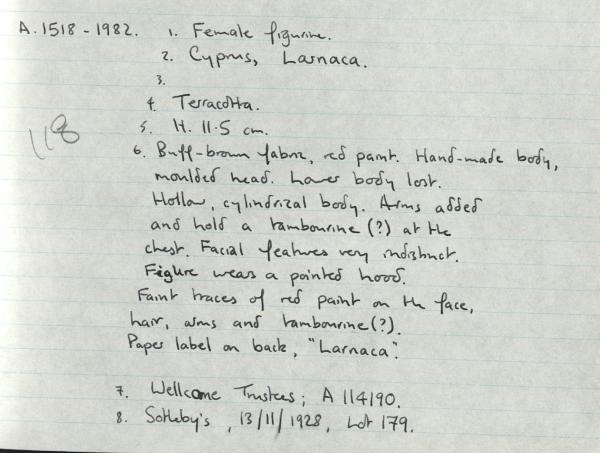 A.1518-1982. 1. Female figurine.
2. Cyprus, Larnaca.
3.
4. Terracotta.
118
5. H. 11.5 cm.
6. Buff-brown fabric, red paint. Hand-made body,
moulded head. Lower body lost.
Hollow, cylindrical body. Arms added
and hold a tambourine (?) at the
chest. Facial features very indistinct.
Figure wears a pointed hood.
Faint traces of red paint on the face,
hair, arms and tambourine(?).
Paper label on back, "Larnaca".
7. Wellcome Trustees; A 114190.
8. Sotheby's, 13/11/1928, Lot 179.